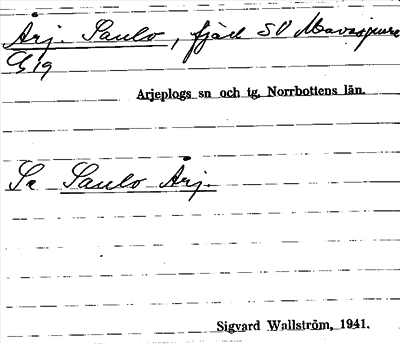 Årj. Saulo, fjäll SV Mavasjaure
G 19
Arjeplogs sn och tg. Norrbottens län.
Se Saulo Årj.
Sigvard Wallström, 1941.